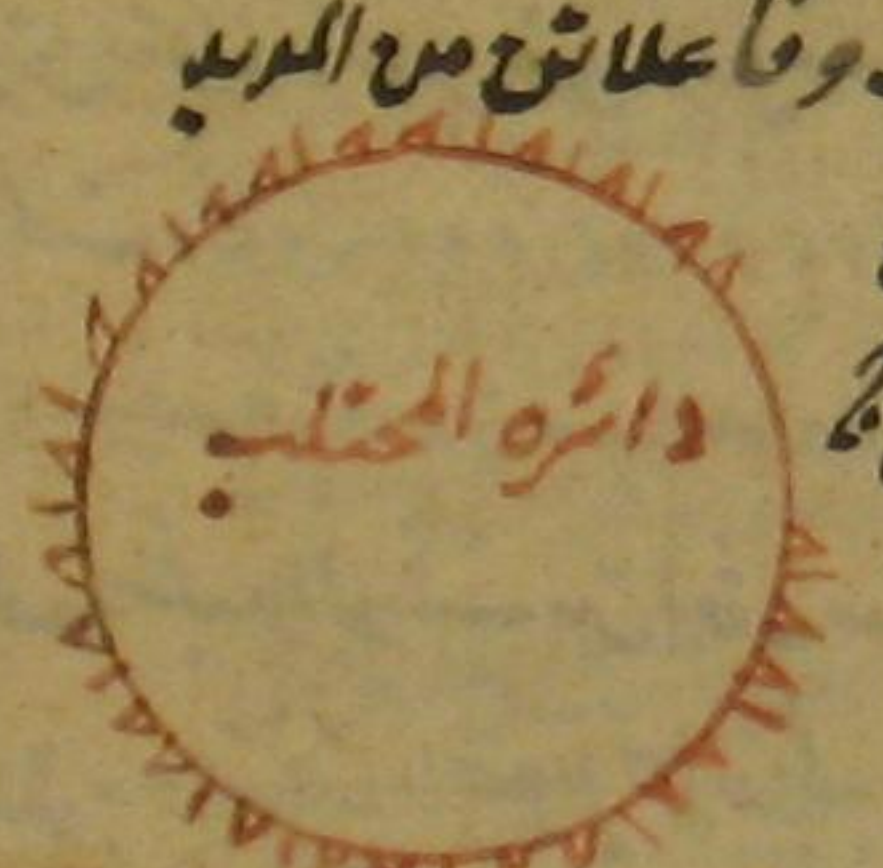 وفا علاتن من المديد
دائره المجتلب